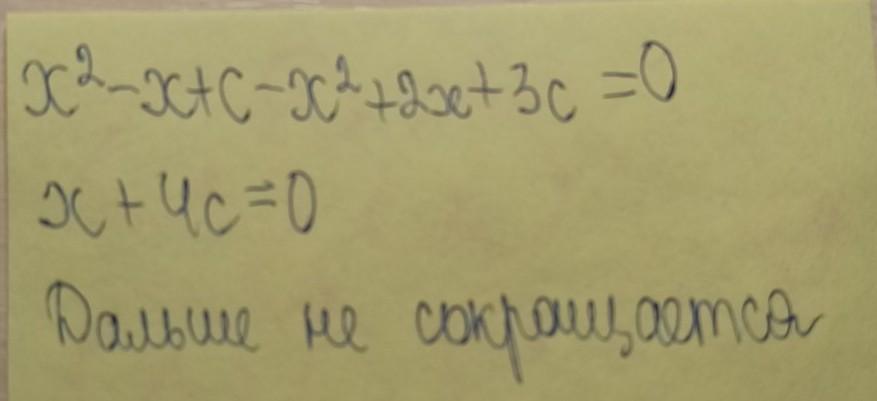 x²-x+c-x²+2x+3c=0
x+4c=0
Дальше не сокращается